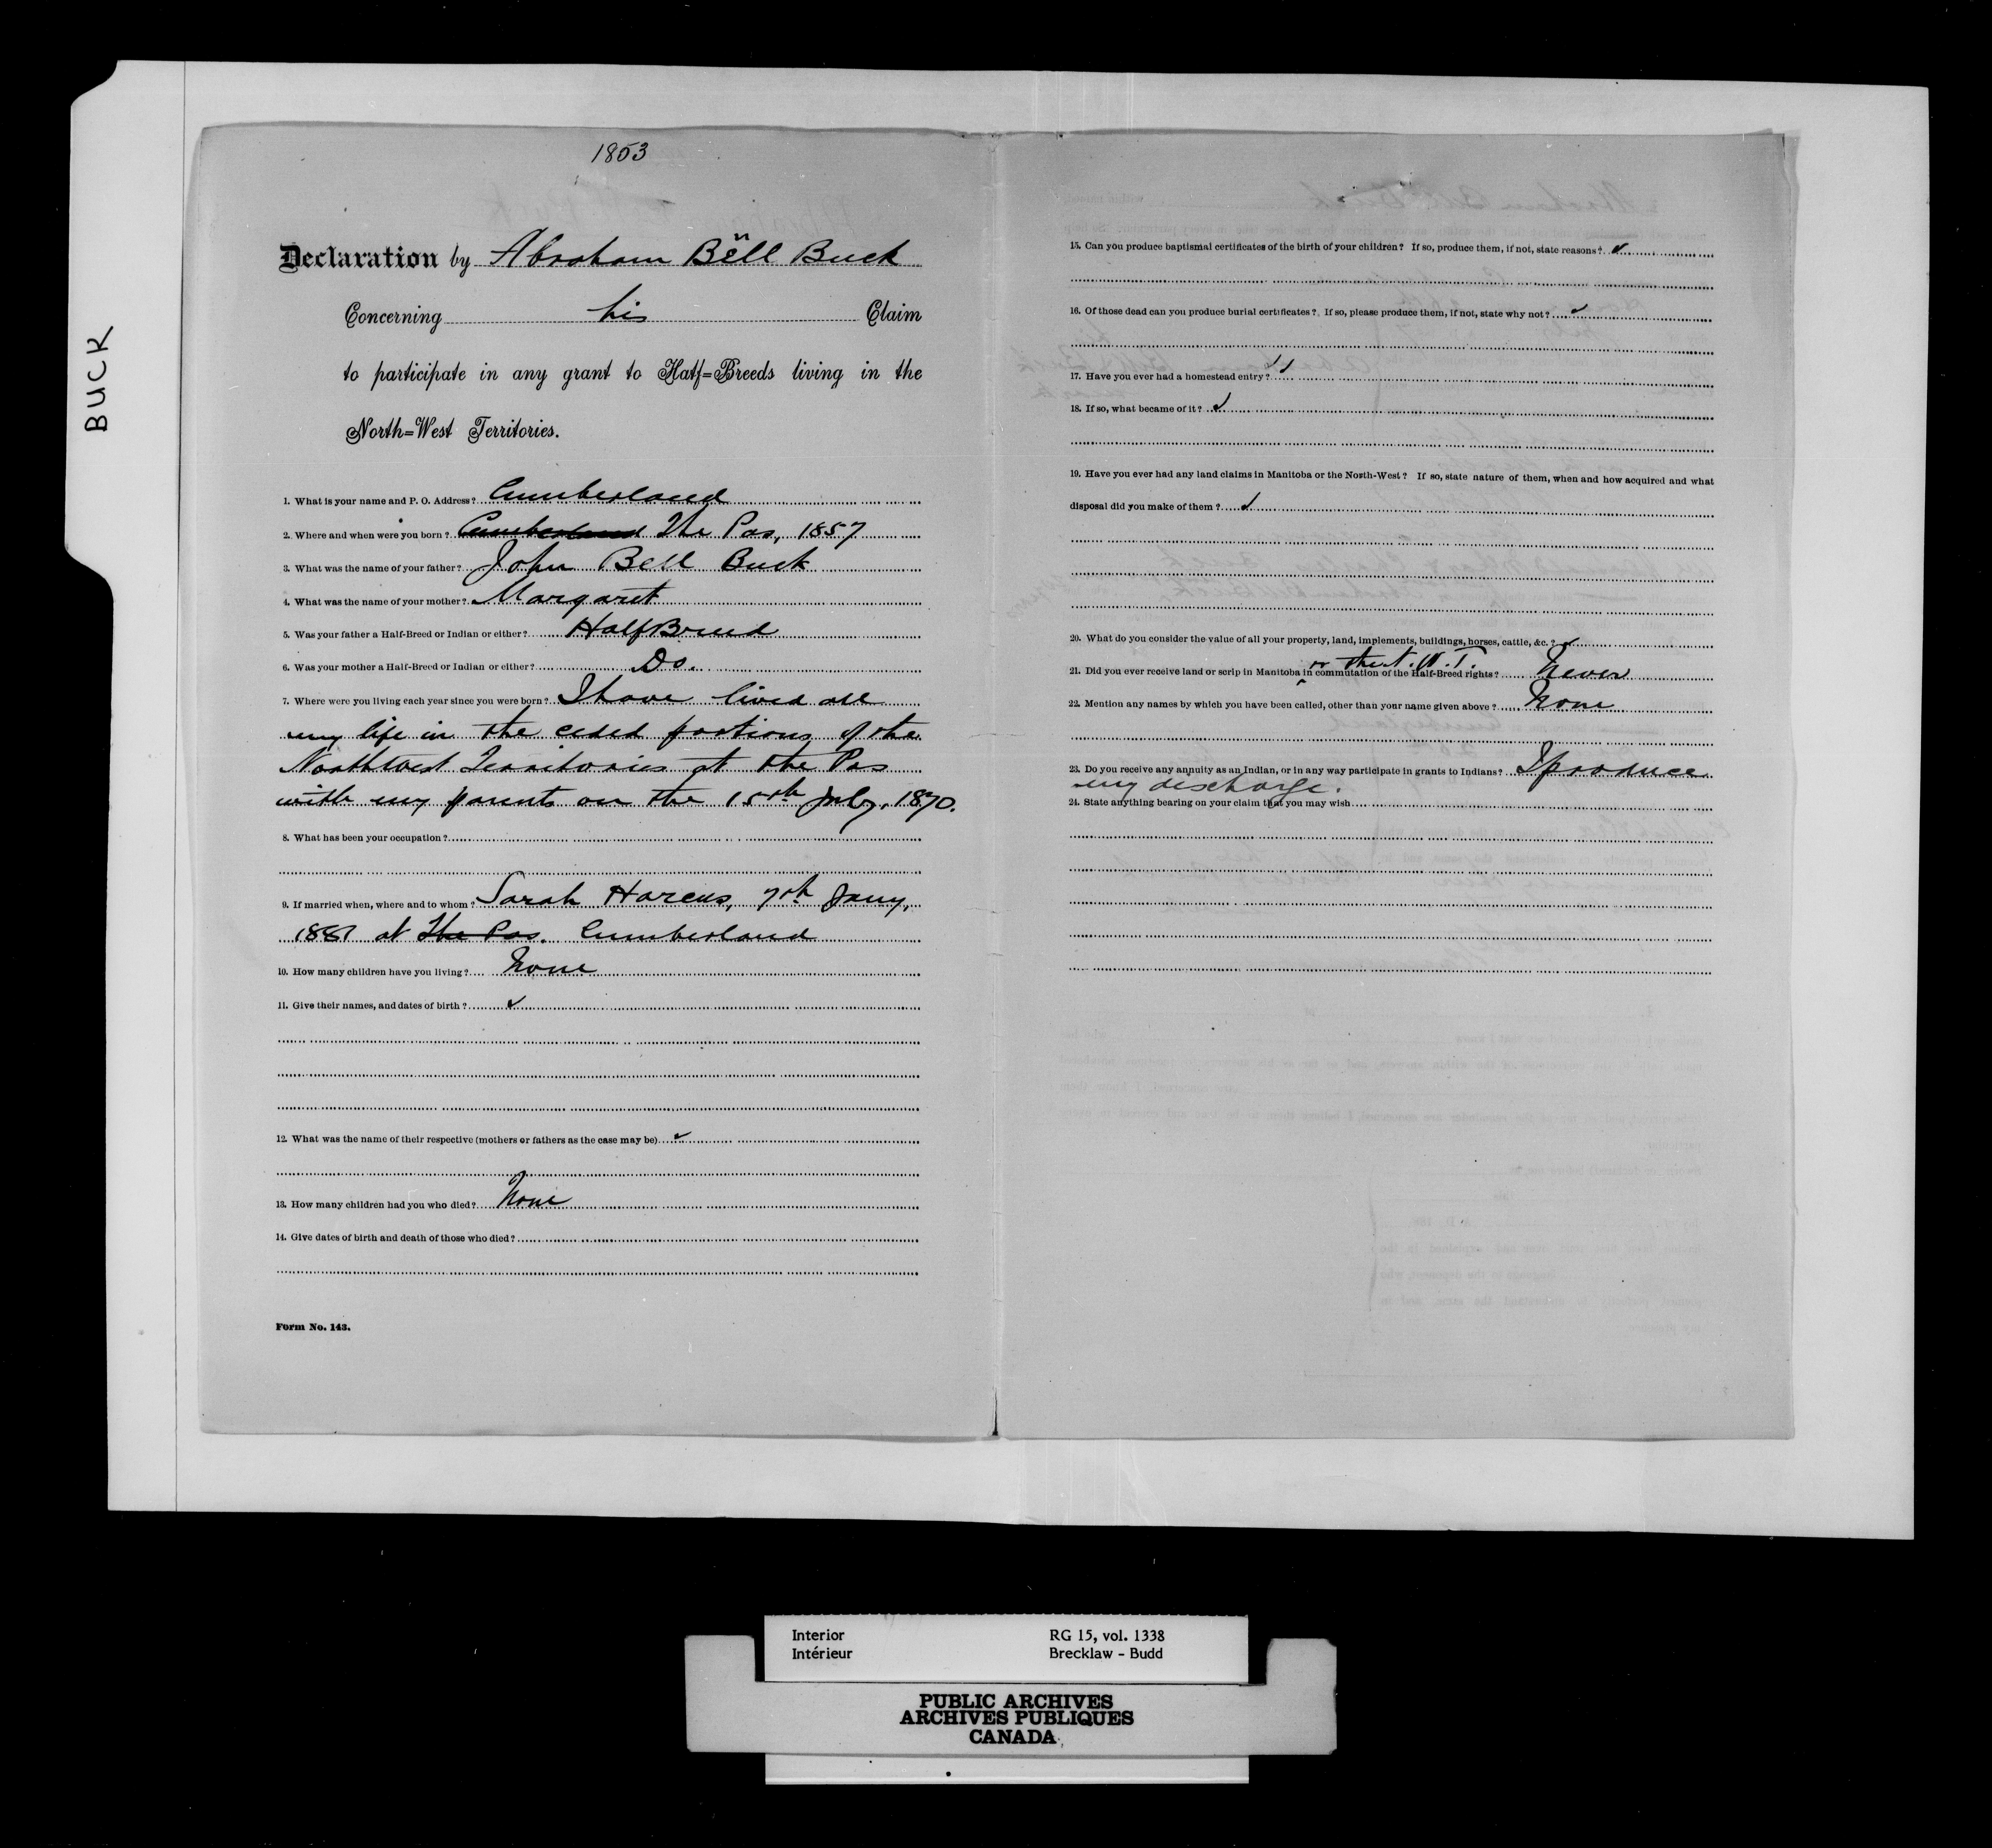 BUCK
1853
Declaration by Abraham Bell Buck
Concerning his Claim
to participate in any grant to Half=Breeds living in the
North=West Territories.
1. What is your name and P. O. Address? Cumberland
2. Where and when were you born? Cumberland The Pas, 1857
3. What was the name of your father? John Bell Buck
4. What was the name of your mother? Margaret
5. Was your father a Half-Breed or Indian or either? Half Breed
6. Was your mother a Half-Breed or Indian or either? Do.
7. Where were you living each year since you were born? I have lived all
my life in the ceded portions of the
Northwest Territories at the Pas
with my parents on the 15th July, 1870.
8. What has been your occupation?
9. If married when, where and to whom? Sarah Harcus, 7th Jany,
1887 at The Pas. Cumberland
10. How many children have you living? None
11. Give their names, and dates of birth? ✓
12. What was the name of their respective (mothers or fathers as the case may be) ✓
13. How many children had you who died? None
14. Give dates of birth and death of those who died?
Form No. 143.
15. Can you produce baptismal certificates of the birth of your children? If so, produce them, if not, state reasons? ✓
16. Of those dead can you produce burial certificates? If so, please produce them, if not, state why not? ✓
17. Have you ever had a homestead entry? ✓
18. If so, what became of it? ✓
19. Have you ever had any land claims in Manitoba or the North-West? If so, state nature of them, when and how acquired and what
disposal did you make of them? ✓
20. What do you consider the value of all your property, land, implements, buildings, horses, cattle, &c.? ✓
or the N. W. T.
21. Did you ever receive land or scrip in Manitoba ‸ in commutation of the Half-Breed rights? Never
22. Mention any names by which you have been called, other than your name given above? None
23. Do you receive any annuity as an Indian, or in any way participate in grants to Indians? I produce
my discharge.
24. State anything bearing on your claim that you may wish
Interior RG 15, vol. 1338
Intérieur Brecklaw - Budd
PUBLIC ARCHIVES
ARCHIVES PUBLIQUES
CANADA